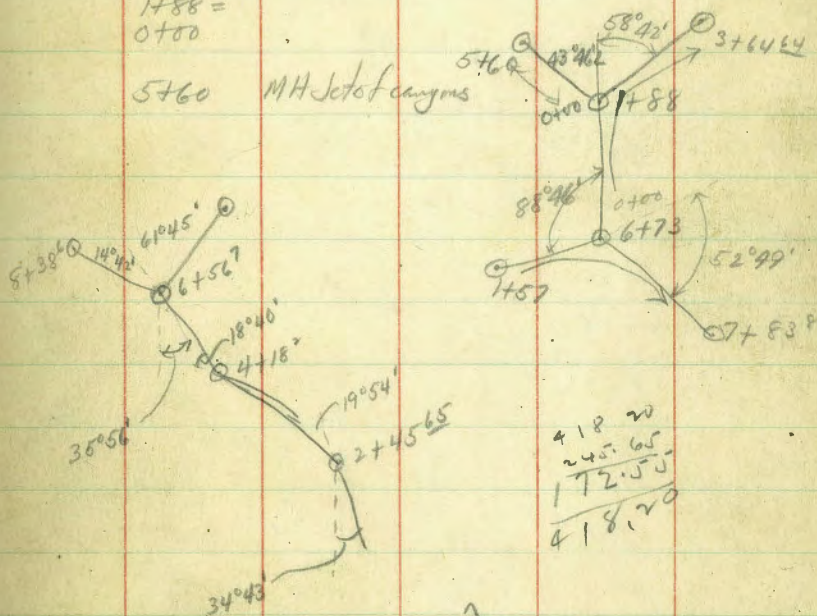 1+88 =
0+00
5+60 MH Jct of canyons
58°42'
3+64 64
5+60
43°46'L
0+00
1+88
88°46'
0+00
6+73
52°49'
1+57
7+83 8
8+38 6
14°42'
61°45'
6+56 7
18°40'
4+18 2
19°54'
35°56'
2+45 65
34°43'
418 20
245.65
172.55
418.20